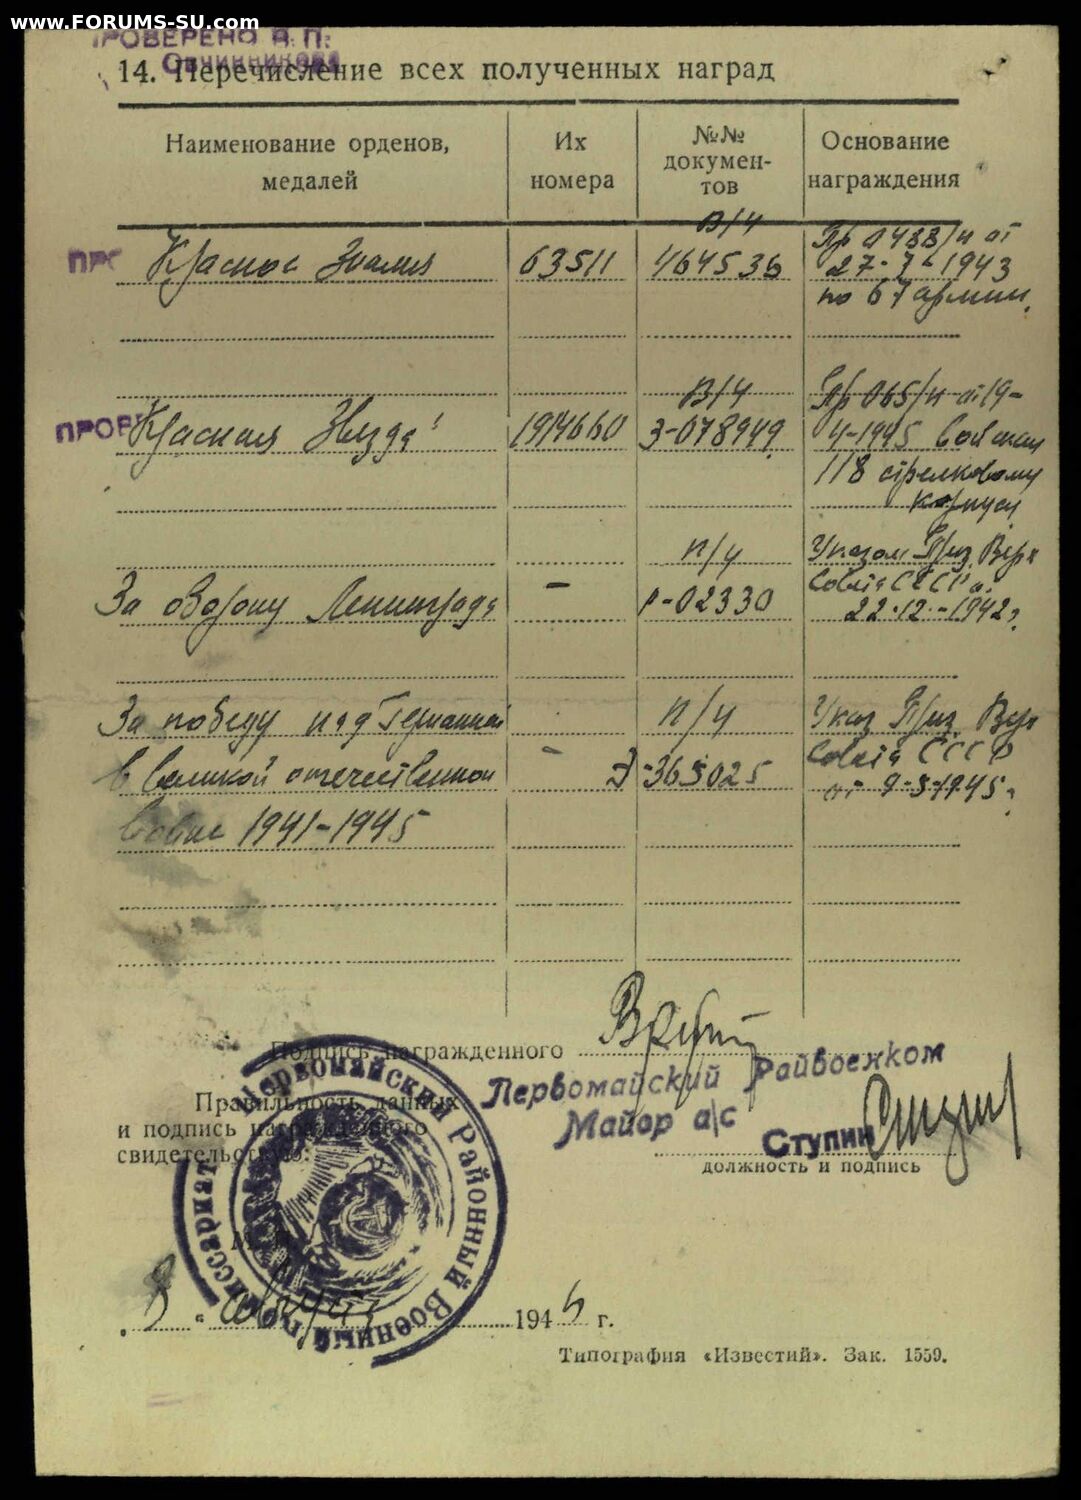 www.FORUMS-SU.com
ПРОВЕРЕНО В. П.
Овчинникова
14. Перечисление всех полученных наград
Наименование орденов, медалей
Их номера
№№ докумен-тов
Основание награждения
ПРО
Красное Знамя
63511
В/ч
464536
Пр 0488/н от
27-7-1943
по 67 армии.
ПРОВ
Красная Звезда
1914660
В/ч
З-078949
Пр 065/н от 19-
4-1945 войскам
118 стрелковому
корпусу
За оборону Ленинграда
-
п/ч
Р-02330
Указом През. Верх
Совета СССР от
22.12.-1942г.
За победу над Германией
в великой отечественной
войне 1941-1945
-
п/ч
Э-365025
Указ През. Верх
Совета СССР
от 9-5-1945г.
Подпись награжденного
Правильность данных
и подпись награжденного
свидетельствую:
Первомайский Райвоенком
Майор а/с
Ступин
должность и подпись
Первомайский Районный Военный Комиссариат
8 " августа 1946 г.
Типография «Известий». Зак. 1559.